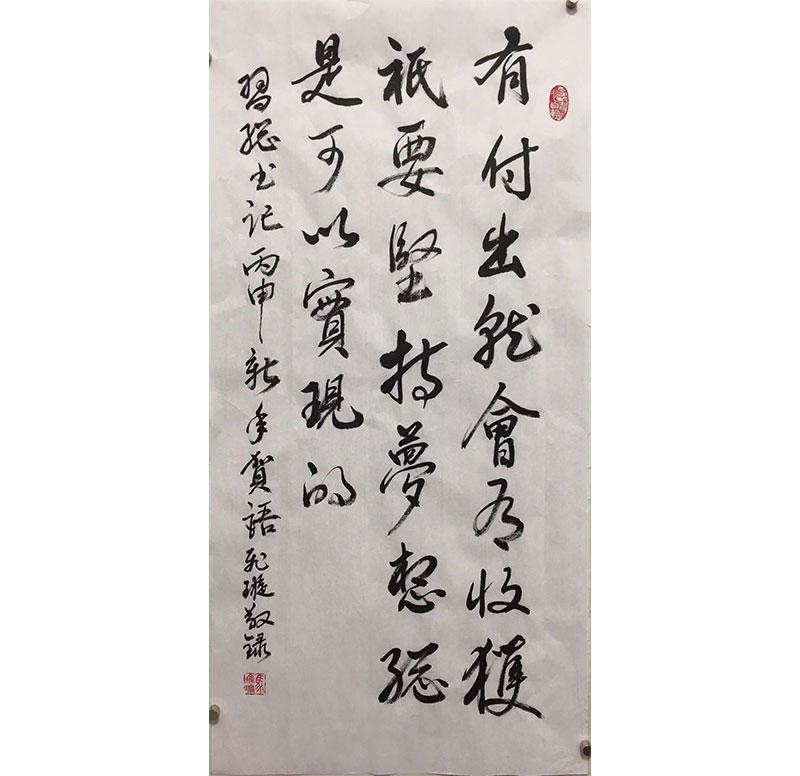 有付出就會有收獲
祇要堅持夢想總
是可以實現的
習總書记丙申新年賀語飛璇敬録